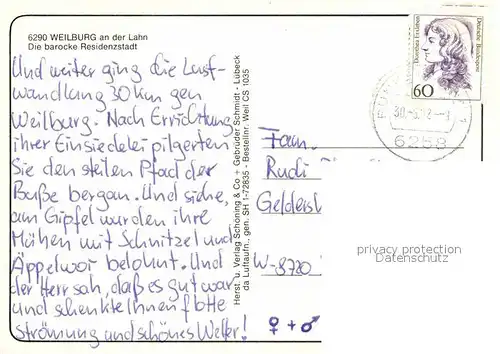 6290 WEILBURG an der Lahn
Die barocke Residenzstadt
Und weiter ging die Lust-
wandlung 30 km gen
Weilburg. Nach Errichtung
ihrer Einsiedelei pilgerten
Sie den steilen Pfad der
Buße bergan. Und siehe,
am Gipfel wurden ihre
Mühen mit Schnitzel und
Äppelwoi belohnt. Und
der Herr sah, daß es gut war
und schenkte Ihnen flotte
Strömung und schönes Wetter!
Herst. u. Verlag Schöning & Co + Gebrüder Schmidt - Lübeck
da Luftaufn., gen. SH 1-72835 - Bestellnr. Weil CS 1035
Dorothea Erxleben
Deutsche Bundespost
60
6258
Fam.
Rudi
W-8720
privacy protection
Datenschutz
♀ + ♂